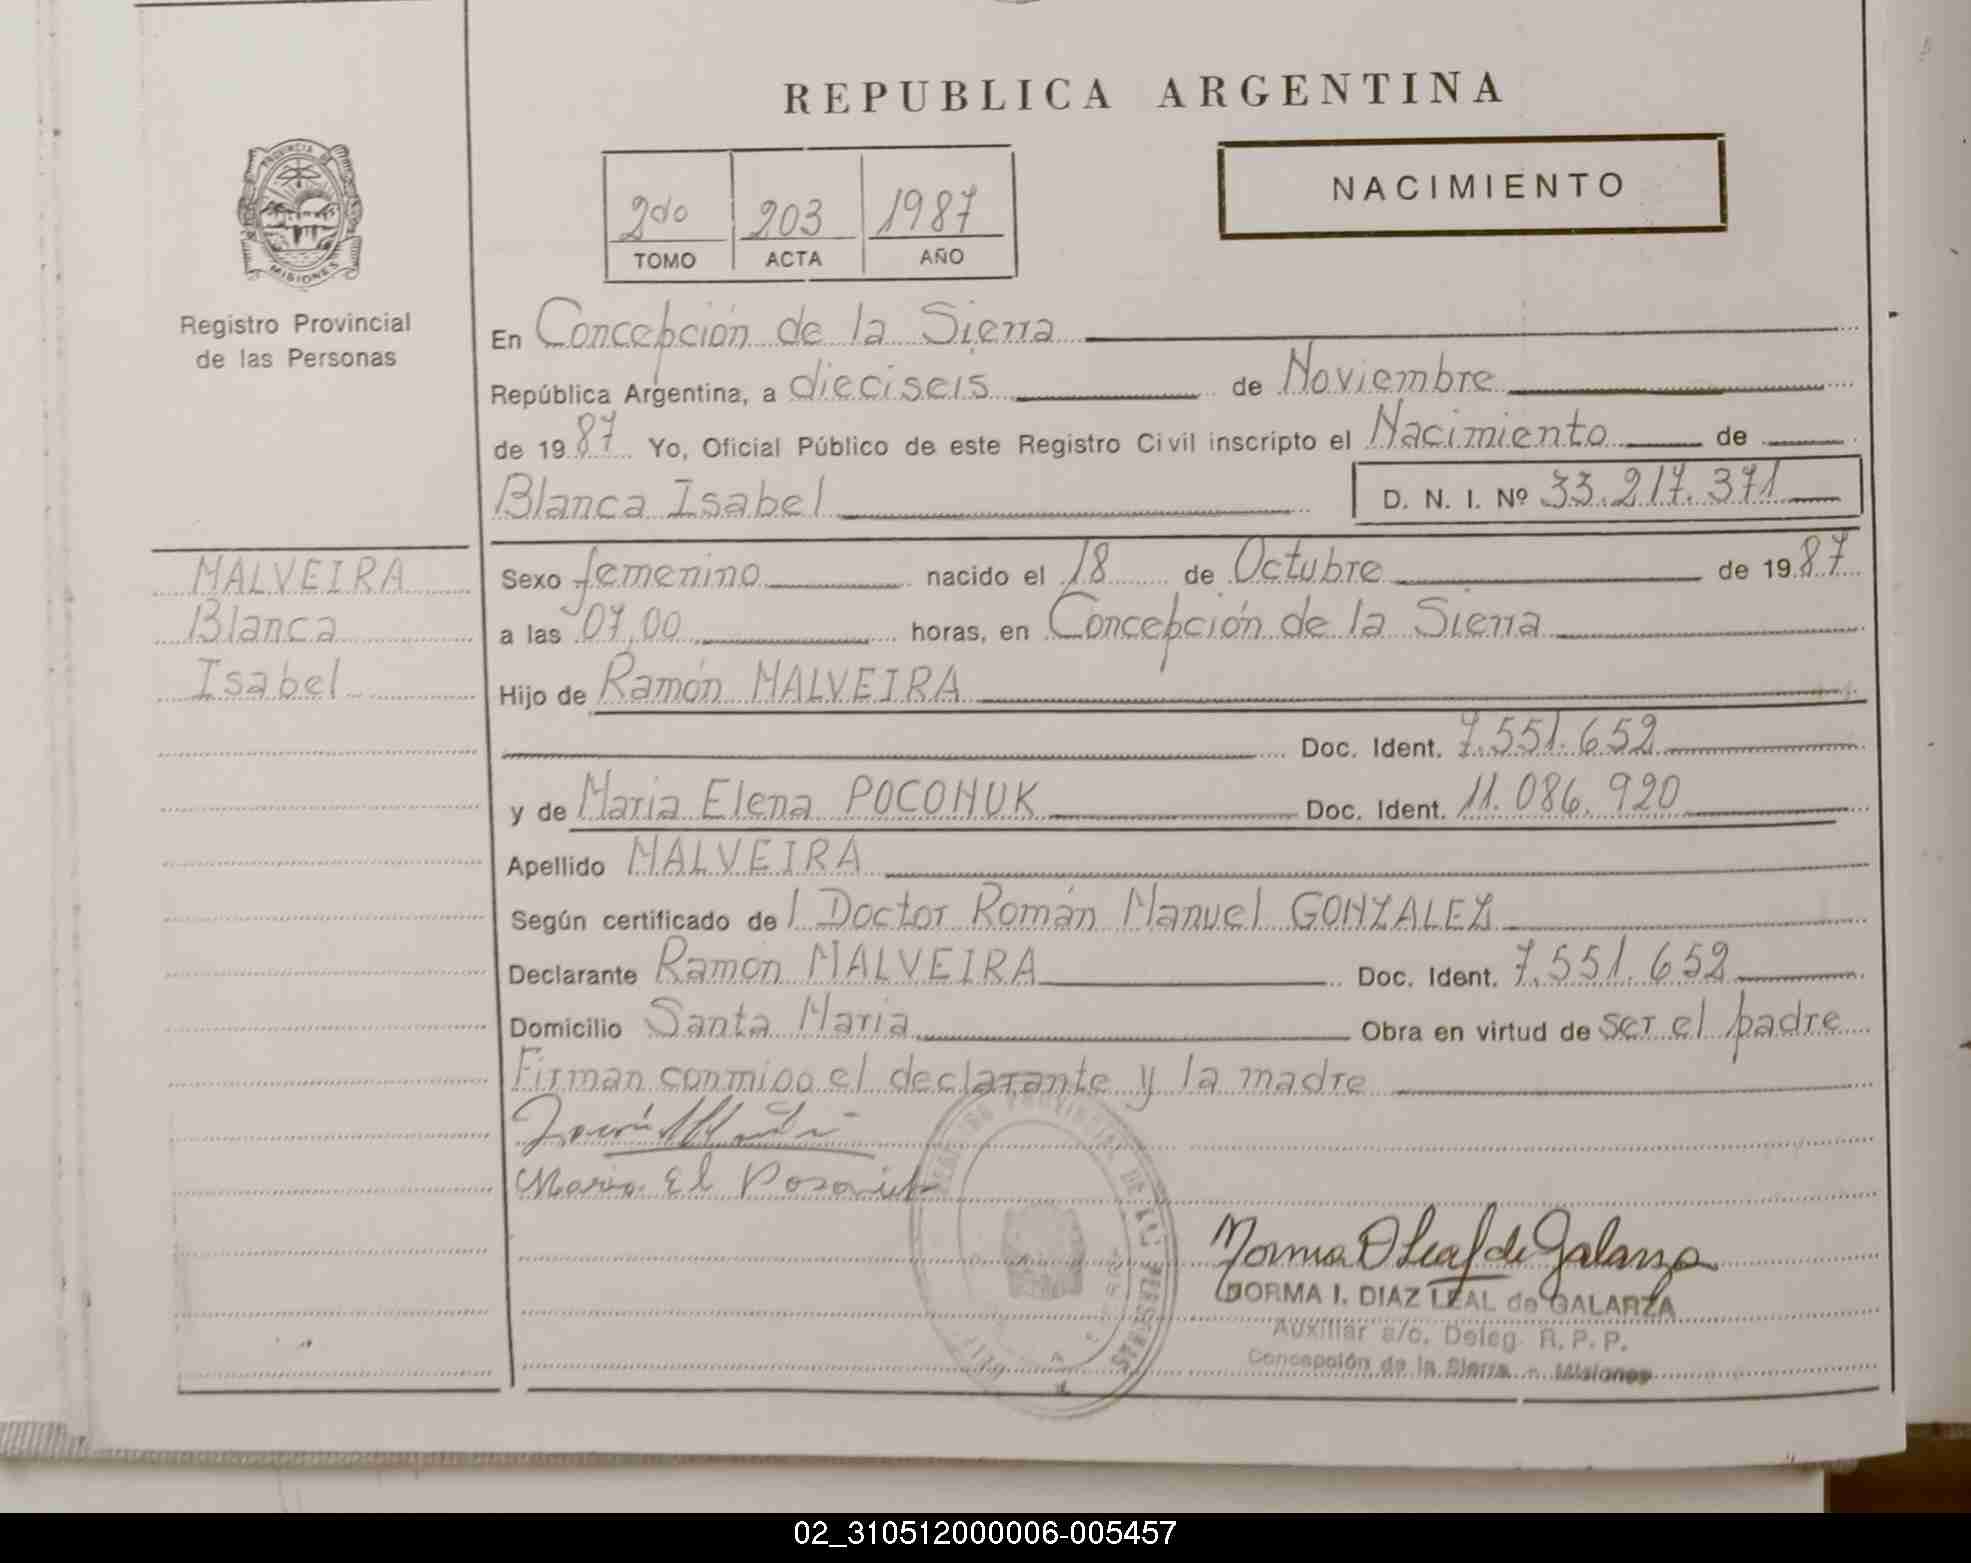 REPUBLICA ARGENTINA
PROVINCIA DE MISIONES
Registro Provincial
de las Personas
2do 203 1987
TOMO ACTA AÑO
NACIMIENTO
En Concepción de la Sierra
República Argentina, a dieciseis de Noviembre
de 1987 Yo, Oficial Público de este Registro Civil inscripto el Nacimiento de
Blanca Isabel D. N. I. Nº 33.217.371
MALVEIRA
Blanca
Isabel
Sexo femenino nacido el 18 de Octubre de 1987
a las 07,00 horas, en Concepción de la Sierra
Hijo de Ramón MALVEIRA
Doc. Ident. 7.551.652
y de Maria Elena POCOHUK Doc. Ident. 11.086.920
Apellido MALVEIRA
Según certificado del Doctor Román Manuel GONZALEZ
Declarante Ramón MALVEIRA Doc. Ident. 7.551.652
Domicilio Santa Maria Obra en virtud de ser el padre
Firman conmigo el declarante y la madre
Maria El
REGISTRO PROVINCIAL DE LAS PERSONAS
Norma D Leal de Galarza
NORMA I. DIAZ LEAL de GALARZA
Auxiliar a/c. Deleg. R. P. P.
Concepción de la Sierra - Misiones
02_310512000006-005457